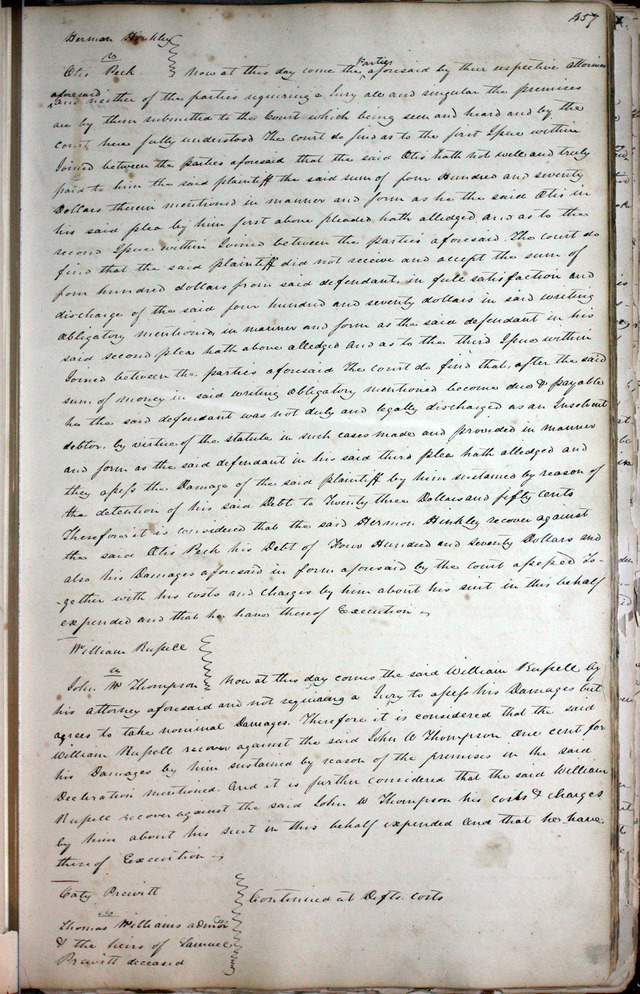 457
Herman Hinkley
vs
Otis Peck. Now at this day come the Parties aforesaid by their respective attornies
aforesaid and neither of the parties requiring a Jury all and singular the premises
are by them submitted to the Court which being seen and heard and by the
court here fully understood The court do find as to the first Issue within
Joined between the Parties aforesaid that the said Otis hath not well and truly
paid to him the said plaintiff the said sum of four Hundred and seventy
Dollars therein mentioned in manner and form as he the said Otis in
his said plea by him first above pleaded hath alledged and as to the
second Issue within Joined between the parties aforesaid. The court do
find that the said plaintiff did not receive and accept the sum of
four hundred dollars from said defendant in full satisfaction and
discharge of the said four hundred and seventy dollars in said writing
obligatory mentioned in manner and form as the said defendant in his
said second plea hath above alledged and as to the third Issue within
Joined between the parties aforesaid The court do find that, after the said
sum of money in said writing obligatory mentioned become due & payable
he the said defendant was not duly and legally discharged as an Insolvent
debtor, by virtue of the statute in such cases made and provided in manner
and form as the said defendant in his said third plea hath alledged and
they assess the Damage of the said plaintiff by him sustained by reason of
the detention of his said Debt to Twenty three Dollars and fifty cents
Therefore it is considered that the said Hermon Hinkley recover against
the said Otis Peck his Debt of Four Hundred and seventy Dollars and
also his Damages aforesaid in form aforesaid by the court assessed To-
gether with his costs and charges by him about his suit in this behalf
expended and that he have thereof Execution
William Russell
vs
John W Thompson Now at this day comes the said William Russell by
his attorney aforesaid and not requiring a Jury to assess his Damages but
agrees to take nominal Damages. Therefore it is considered that the said
William Russell recover against the said John W Thompson One cent for
his Damages by him sustained by reason of the premises in the said
Declaration mentioned. And it is further considered that the said William
Russell recover against the said John W Thompson his costs & charges
by him about his suit in this behalf expended and that he have
thereof Execution
Caty Prewitt
vs
Continued at Defts. costs
Thomas Williams admor
& the heirs of Samuel
Prewitt deceased